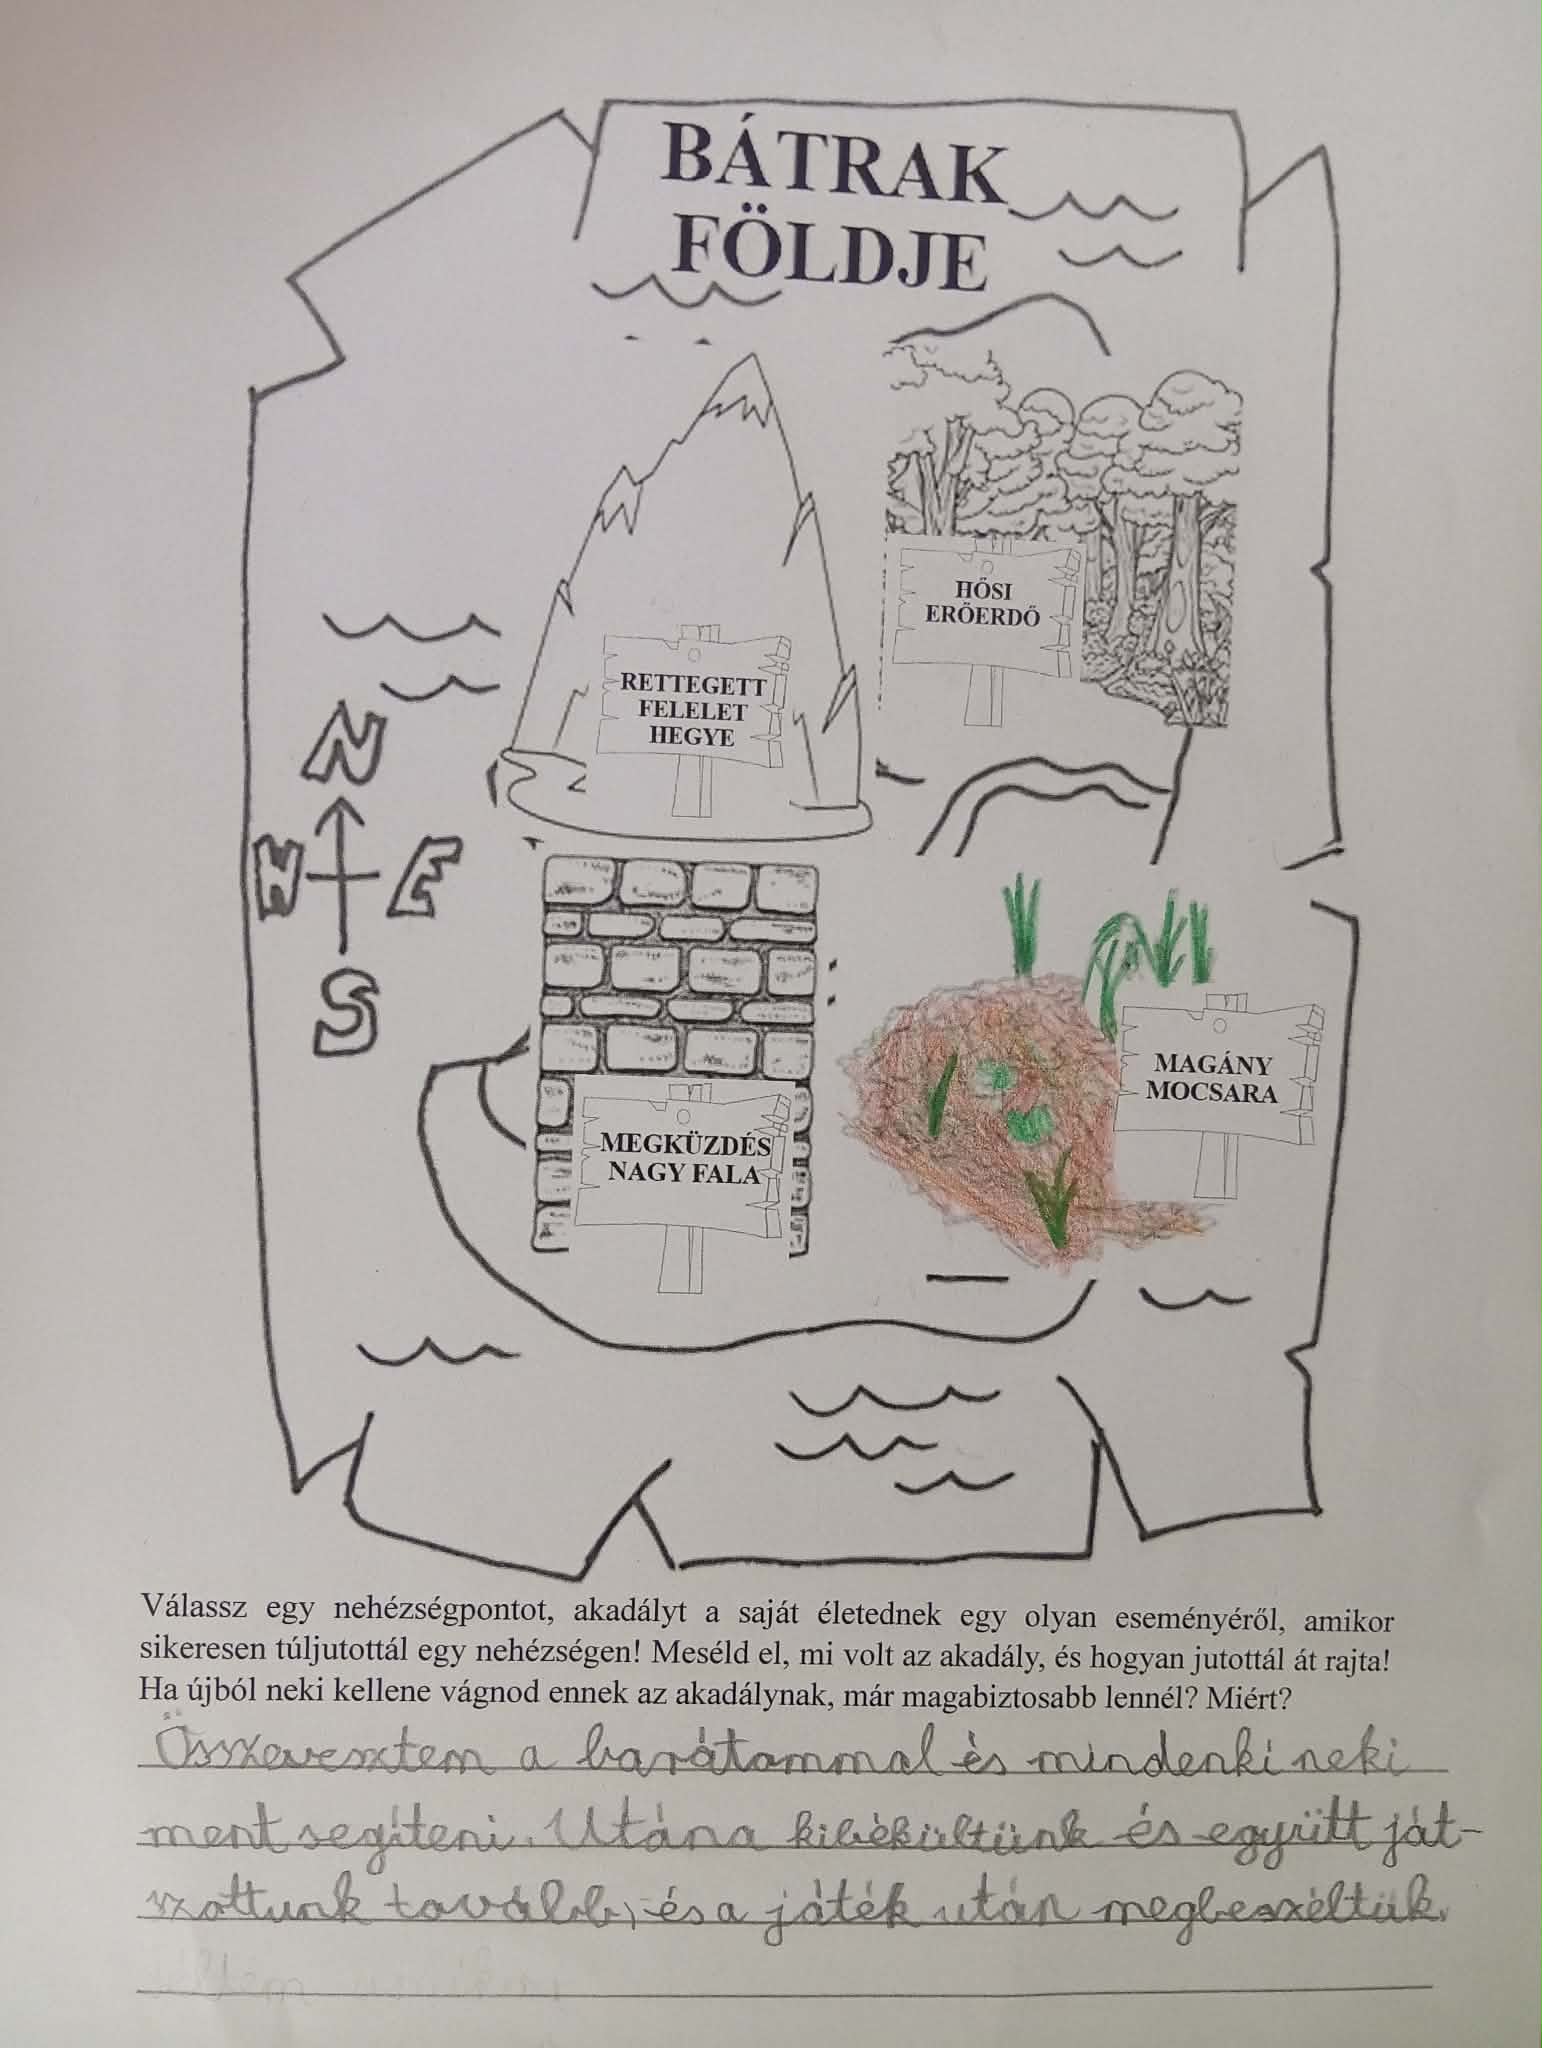 BÁTRAK
FÖLDJE
HŐSI
ERŐERDŐ
RETTEGETT
FELELET
HEGYE
N
W
E
S
MAGÁNY
MOCSARA
MEGKÜZDÉS
NAGY FALA
Válassz egy nehézségpontot, akadályt a saját életednek egy olyan eseményéről, amikor
sikeresen túljutottál egy nehézségen! Meséld el, mi volt az akadály, és hogyan jutottál át rajta!
Ha újból neki kellene vágnod ennek az akadálynak, már magabiztosabb lennél? Miért?
Összevesztem a barátommal és mindenki neki
ment segíteni. Utána kibékültünk és együtt ját-
szottunk tovább, és a játék után megbeszéltük.